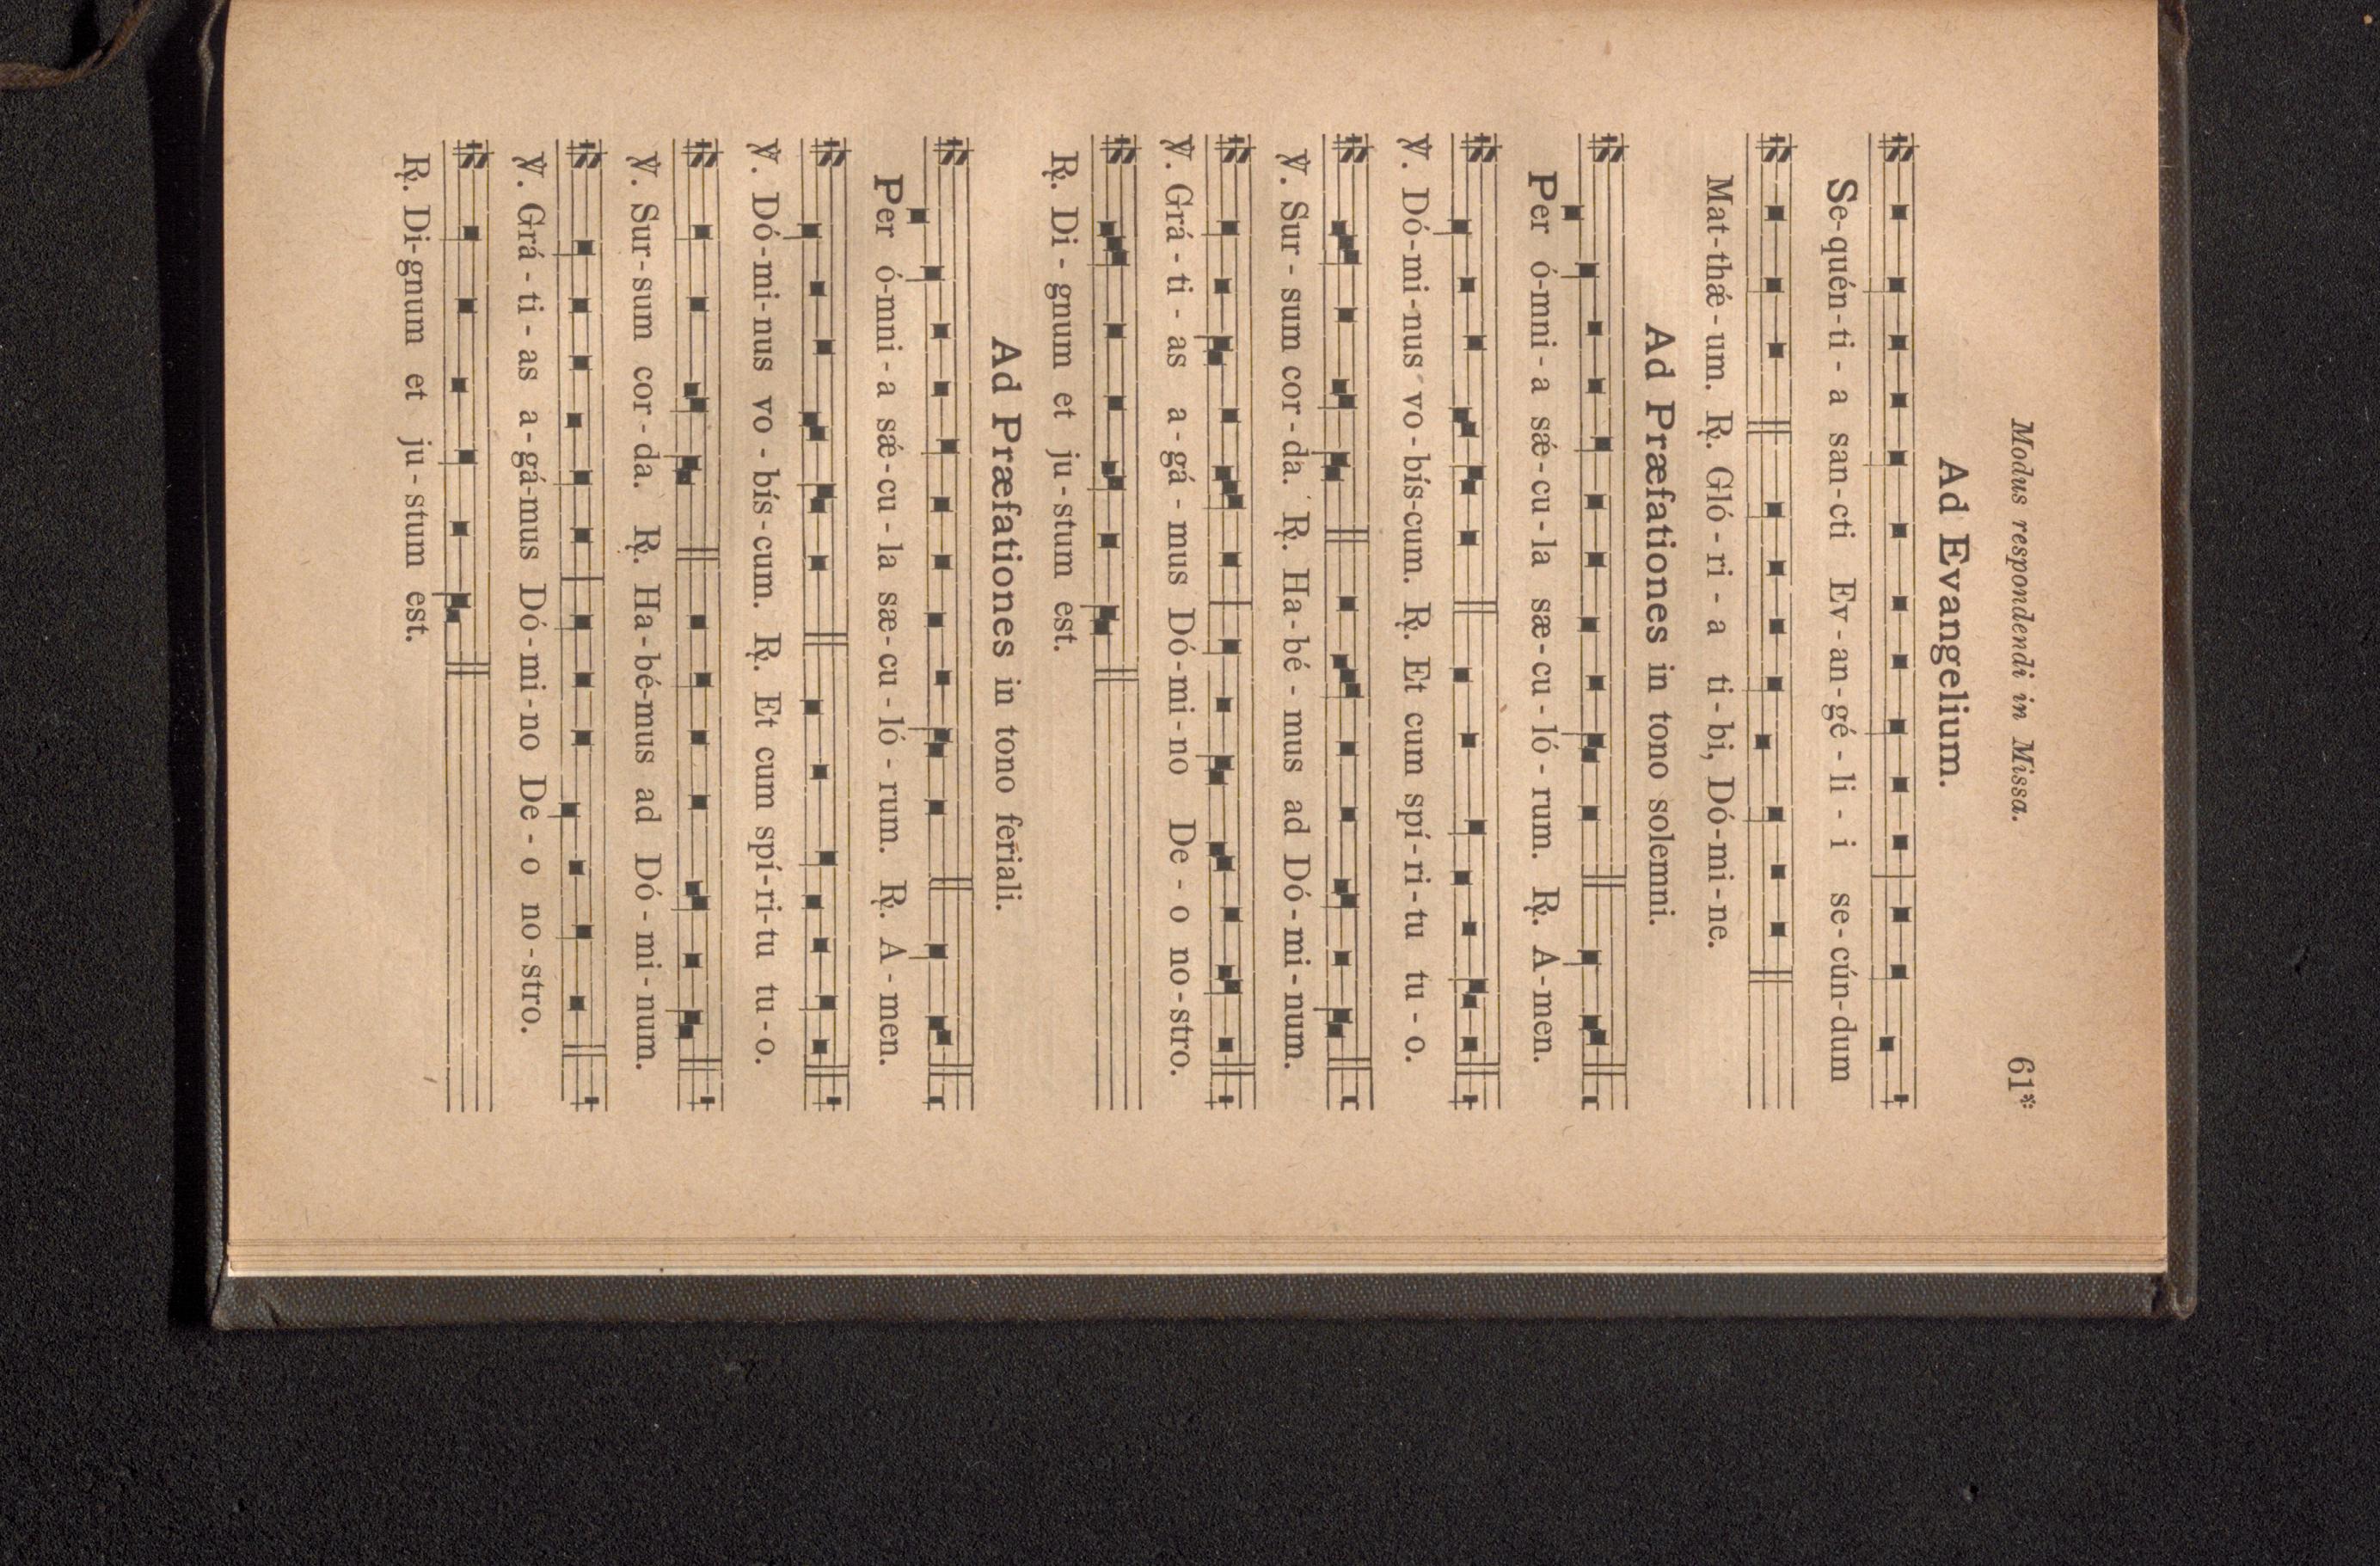 Modus respondendi in Missa. 61*
Ad Evangelium.
Se-quén-ti - a san-cti Ev - an-gé - li - i se-cún-dum
Mat-thǽ-um. ℟. Gló - ri - a ti - bi, Dó-mi-ne.
Ad Præfationes in tono solemni.
Per ó-mni - a sǽ-cu-la sæ-cu-ló-rum. ℟. A-men.
℣. Dó-mi-nus vo-bís-cum. ℟. Et cum spí-ri-tu tu - o.
℣. Sur - sum cor-da. ℟. Ha-bé - mus ad Dó-mi-num.
℣. Grá-ti - as a-gá - mus Dó-mi-no De - o no-stro.
℟. Di - gnum et ju-stum est.
Ad Præfationes in tono feriali.
Per ó-mni-a sǽ-cu-la sæ-cu-ló-rum. ℟. A-men.
℣. Dó-mi-nus vo-bís-cum. ℟. Et cum spí-ri-tu tu-o.
℣. Sur-sum cor-da. ℟. Ha-bé-mus ad Dó-mi-num.
℣. Grá-ti-as a-gá-mus Dó-mi-no De-o no-stro.
℟. Di-gnum et ju-stum est.